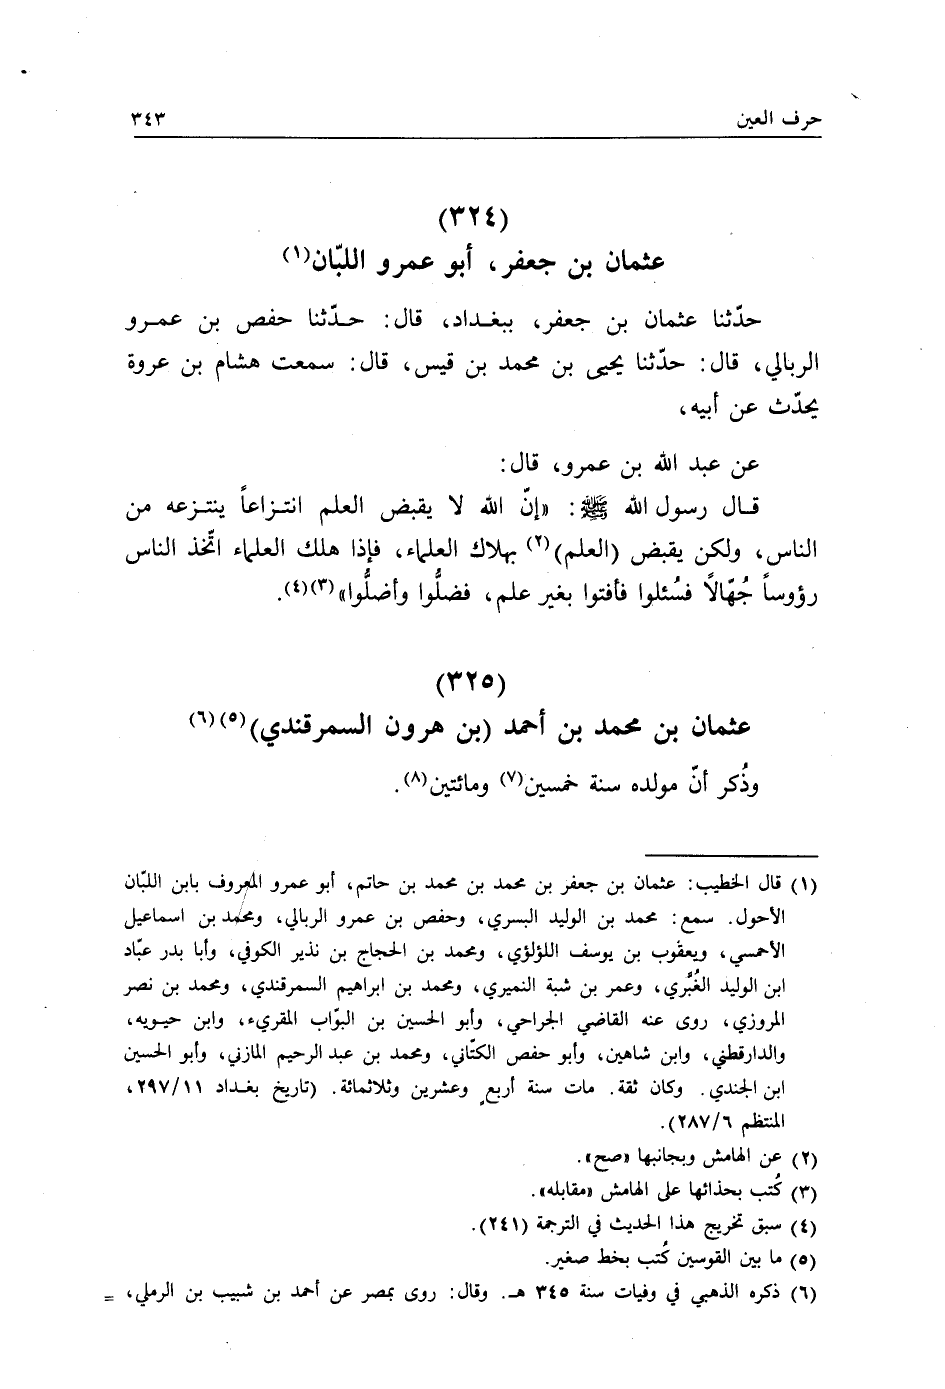 حرف العين ٣٤٣
(٣٢٤)
عثمان بن جعفر، أبو عمرو اللبّان(١)
حدّثنا عثمان بن جعفر، ببغـداد، قال: حـدّثنا حفص بن عمـرو
الربالي، قال: حدّثنا يحيى بن محمد بن قيس، قال: سمعت هشام بن عروة
يحدّث عن أبيه،
عن عبد الله بن عمرو، قال:
قـال رسول الله ﷺ: «إنّ الله لا يقبض العلم انتـزاعاً ينتـزعه من
الناس، ولكن يقبض (العلم)(٢) بهلاك العلماء، فإذا هلك العلماء اتّخذ الناس
رؤوساً جُهّالاً فسُئلوا فأفتوا بغير علم، فضلُّوا وأضلُّوا»(٣)(٤).
(٣٢٥)
عثمان بن محمد بن أحمد (بن هرون السمرقندي)(٥)(٦)
وذُكر أنّ مولده سنة خمسين(٧) ومائتين(٨).
(١) قال الخطيب: عثمان بن جعفر بن محمد بن محمد بن حاتم، أبو عمرو المعروف بابن اللبّان
الأحول. سمع: محمد بن الوليد البسري، وحفص بن عمرو الربالي، ومحمد بن اسماعيل
الأحمسي، ويعقوب بن يوسف اللؤلؤي، ومحمد بن الحجاج بن نذير الكوفي، وأبا بدر عبّاد
ابن الوليد الغُبَّري، وعمر بن شبة النميري، ومحمد بن ابراهيم السمرقندي، ومحمد بن نصر
المروزي، روى عنه القاضي الجراحي، وأبو الحسين بن البوّاب المقريء، وابن حيـويه،
والدارقطني، وابن شاهين، وأبو حفص الكتّاني، ومحمد بن عبد الرحيم المازني، وأبو الحسين
ابن الجندي. وكان ثقة. مات سنة أربع وعشرين وثلاثمائة. (تاريخ بغـداد ٢٩٧/١١،
المنتظم ٢٨٧/٦).
(٢) عن الهامش وبجانبها «صح».
(٣) كُتب بحذائها على الهامش «مقابله».
(٤) سبق تخريج هذا الحديث في الترجمة (٢٤١).
(٥) ما بين القوسين كُتب بخط صغير.
(٦) ذكره الذهبي في وفيات سنة ٣٤٥ هـ. وقال: روى بمصر عن أحمد بن شبيب بن الرملي، =